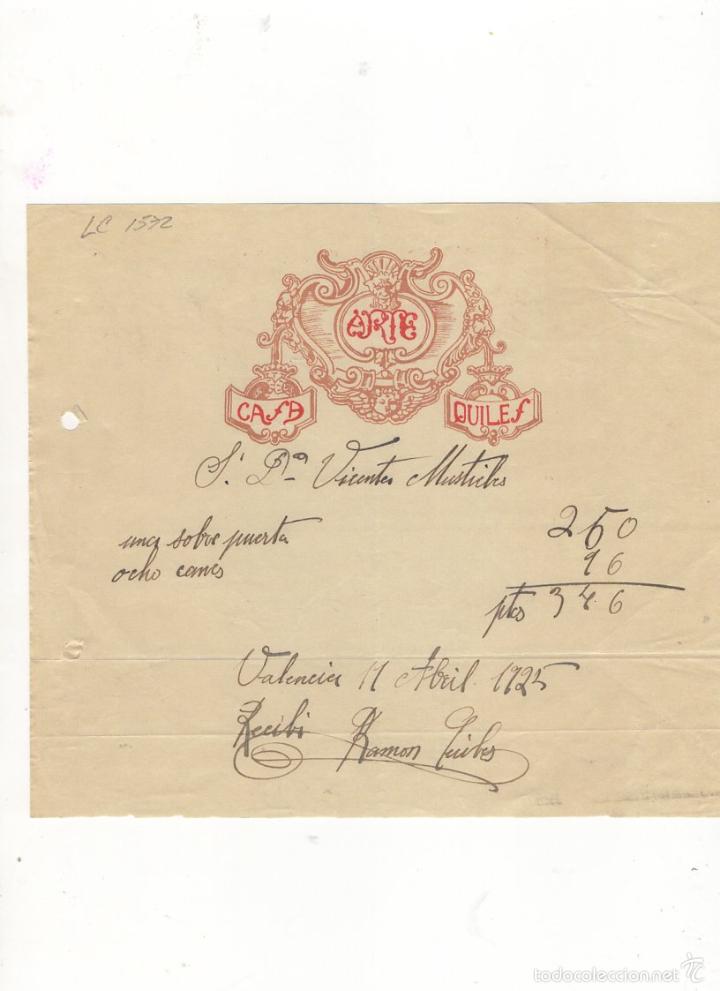 LC 1532
ARTE
CASA QUILES
S. Dn Vicente Mustieles
una sobre puerta 250
ocho canes 96
ptas 346
Valencia 11 Abril 1925
Recibi
Ramon Quiles
todocoleccion.net